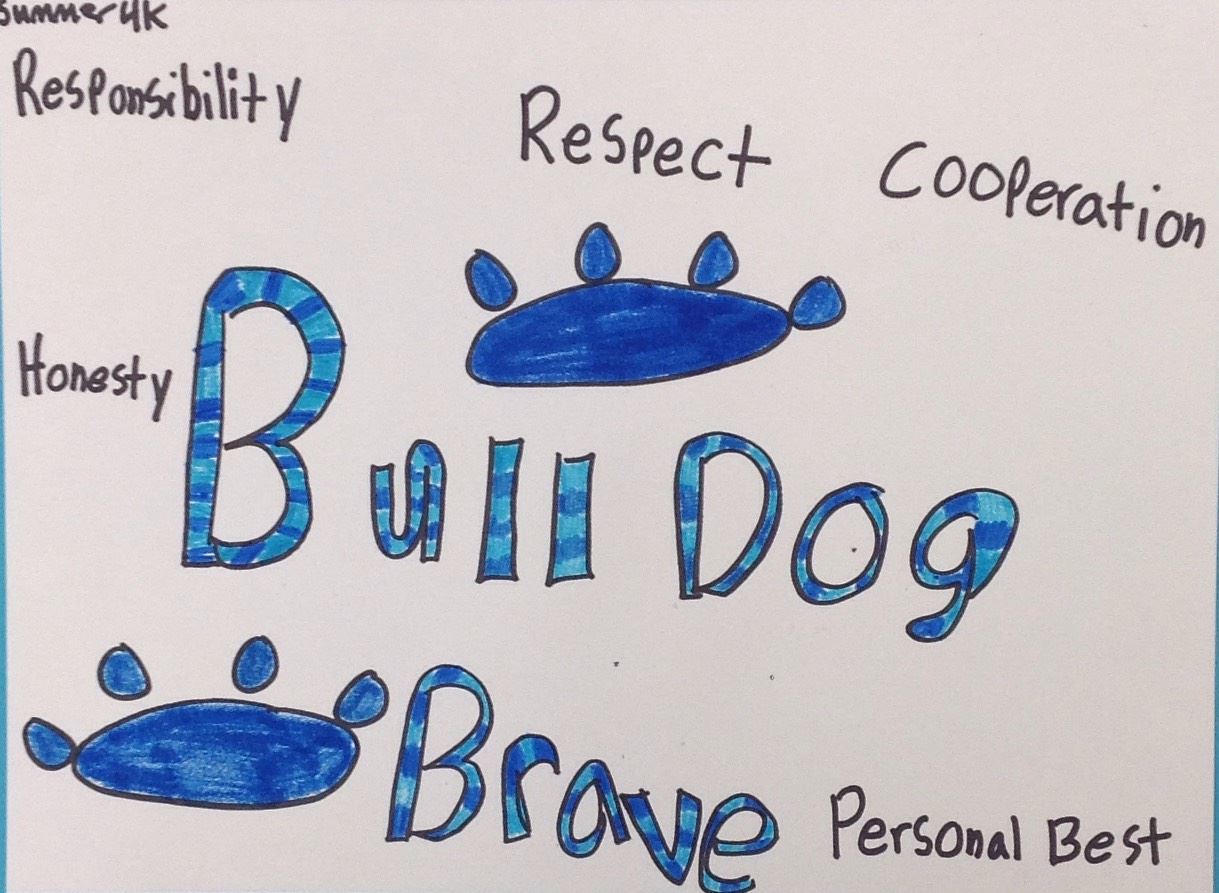 Summer 4K
Responsibility
Respect
Cooperation
Honesty
Bull Dog
Brave
Personal Best